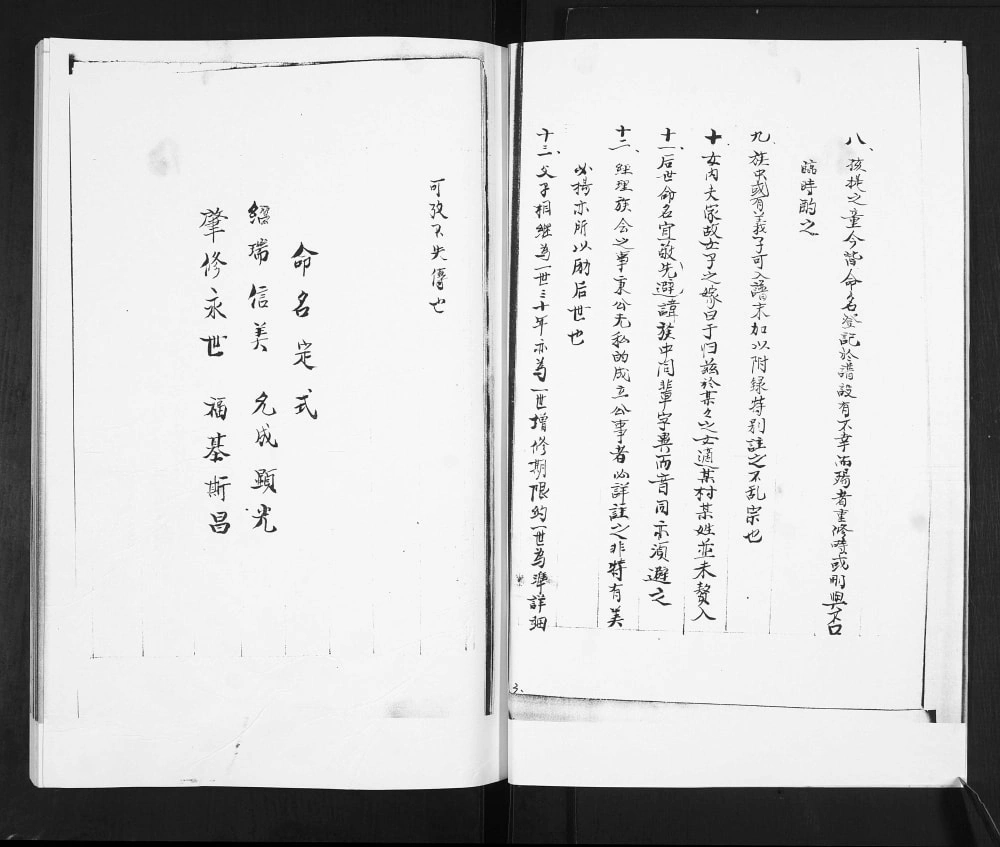 八、孩提之童今皆命名登記於譜設有不幸而殤者重修時或刪與不口
臨時酌之
九、族中或有義子可入譜末加以附録特别註之不乱宗也
十、女內夫家故女子之嫁曰于归茲於某々之士適某村某姓並未贅入
十一、后世命名宜敬先避諱族中同輩字異而音同亦須避之
十二、經理族会之事秉公无私的成立公事者必詳註之非特有美
必揚亦所以励后世也
十三、父子相継為一世三十年亦為一世增修期限約一世為準詳細
3.
可攷不失傳也
命名定式
紹瑞信美 允成顕光
肇修永世 福基斯昌